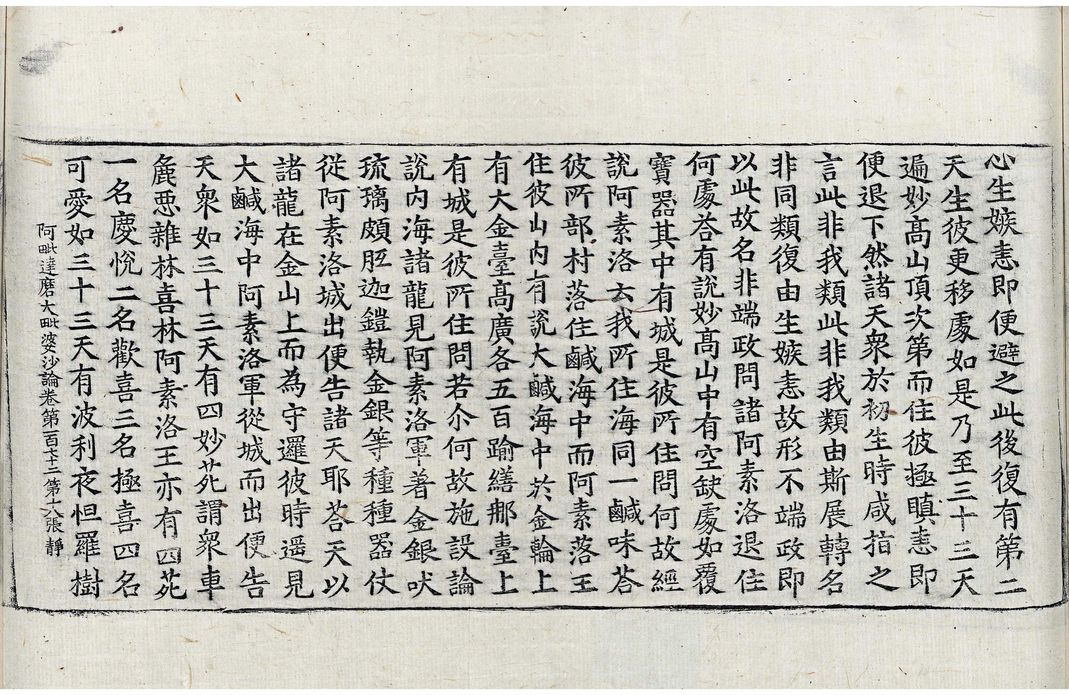 心生嫉恚即便避之此後復有第二
天生彼更移處如是乃至三十三天
遍妙髙山頂次第而住彼極瞋恚即
便退下然諸天衆於初生時咸指之
言此非我類此非我類由斯展轉名
非同類復由生嫉恚故形不端政即
以此故名非端政問諸阿素洛退住
何處荅有說妙髙山中有空缺處如覆
寶器其中有城是彼所住問何故經
說阿素洛云我所住海同一鹹味荅
彼所部村落住鹹海中而阿素落王
住彼山内有說大鹹海中於金輪上
有大金臺髙廣各五百踰繕那臺上
有城是彼所住問若尒何故施設論
說内海諸龍見阿素洛軍著金銀吠
琉璃頗胝迦鎧執金銀等種種器仗
從阿素洛城出便告諸天耶荅天以
諸龍在金山上而為守邏彼時遥見
大鹹海中阿素洛軍從城而出便告
天衆如三十三天有四妙苑謂衆車
麁惡雜林喜林阿素洛王亦有四苑
一名慶悅二名歡喜三名極喜四名
可愛如三十三天有波利夜怛羅樹
阿毗達磨大毗婆沙論卷第一百七十二 第十六張 靜